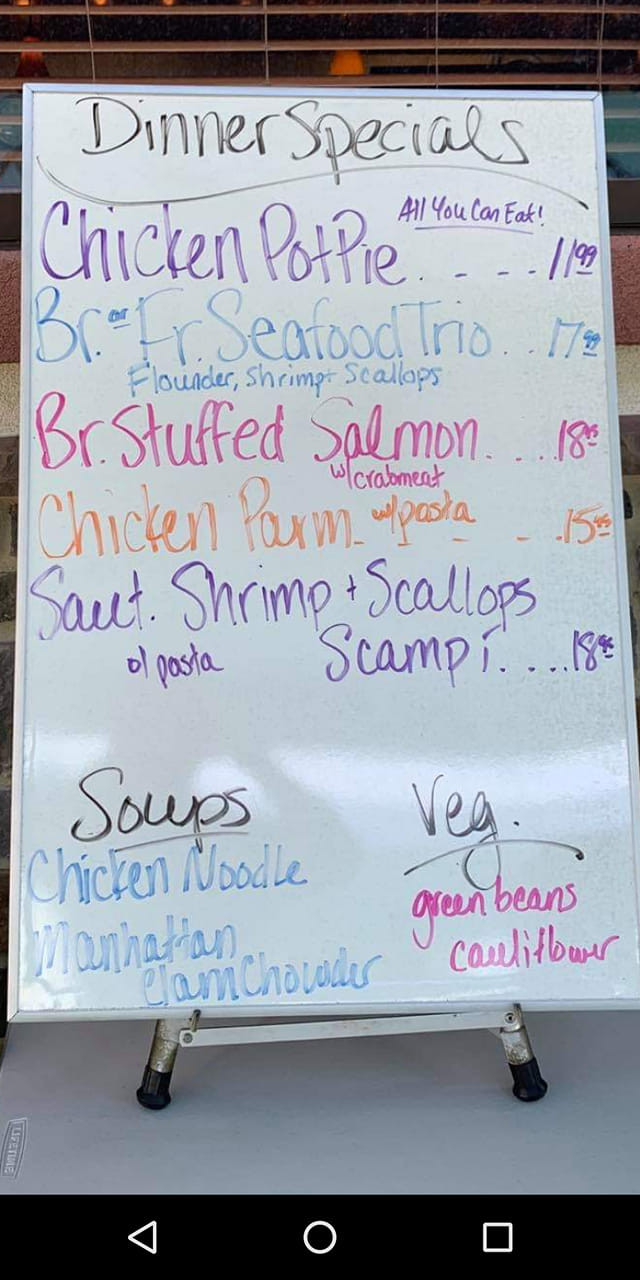 Dinner Specials
All You Can Eat!
Chicken Pot Pie. - - - - 11 99
Br. or Fr. Seafood Trio. . . 17 99
Flounder, Shrimp + Scallops
Br. Stuffed Salmon. . . . 18 95
w/crabmeat
Chicken Parm. w/pasta - - - . 15 95
Saut. Shrimp + Scallops
o/ pasta Scampi. . . . . 18 95
Soups
Veg.
Chicken Noodle
Manhattan
Clam Chowder
green beans
cauliflower
LIFETIME